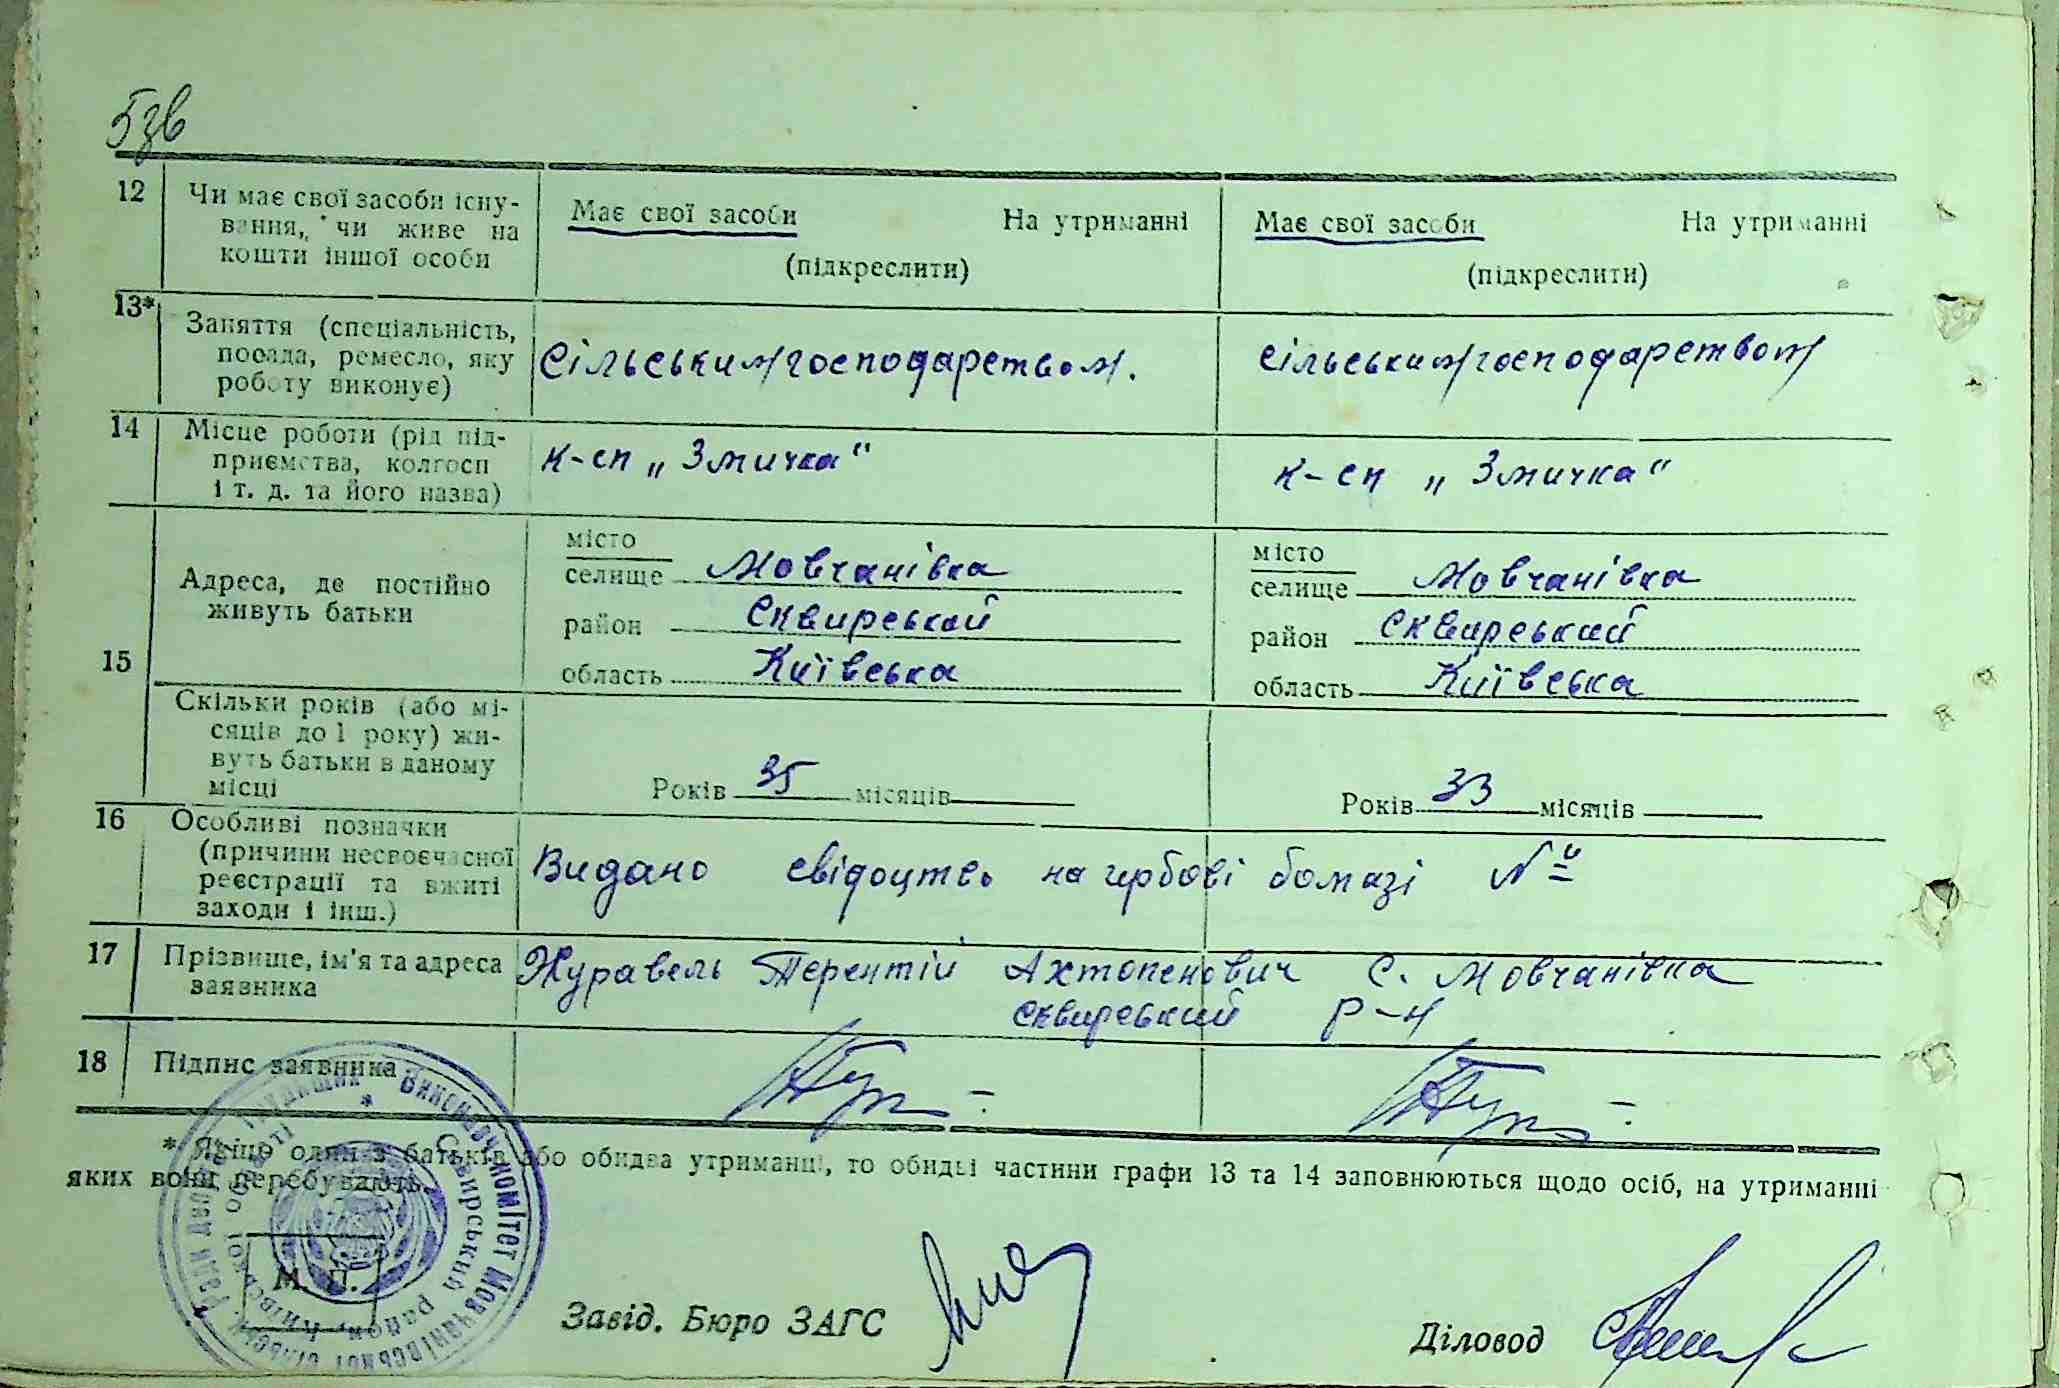 5зв
12 Чи має свої засоби існу-
вання, чи живе на
кошти іншої особи
Має свої засоби На утриманні
(підкреслити)
Має свої засоби На утриманні
(підкреслити)
13* Заняття (спеціальність,
посада, ремесло, яку
роботу виконує)
Сільським господарством.
сільським господарством
14 Місце роботи (рід під-
приємства, колгосп
і т. д. та його назва)
к-сп „Змичка"
к-сп „Змичка"
15
Адреса, де постійно
живуть батьки
місто
селище Мовчанівка
район Сквирський
область Київська
місто
селище Мовчанівка
район Сквирський
область Київська
Скільки років (або мі-
сяців до 1 року) жи-
вуть батьки в даному
місці
Років 35 місяців
Років 33 місяців
16 Особливі позначки
(причини несвоєчасної
реєстрації та вжиті
заходи і інш.)
Видано свідоцтво на гербові бомазі №
17 Прізвище, ім'я та адреса
заявника
Журавель Терентій Ахтопенович с. Мовчанівка
сквирський р-н
18 Підпис заявника
* Якщо один з батьків або обидва утриманці, то обидві частини графи 13 та 14 заповнюються щодо осіб, на утриманні
яких вони перебувають.
Виконавчий комітет Мовчанівської сільської Ради депутатів трудящих
Сквирський район, Київської області
М. П.
Завід. Бюро ЗАГС
Діловод